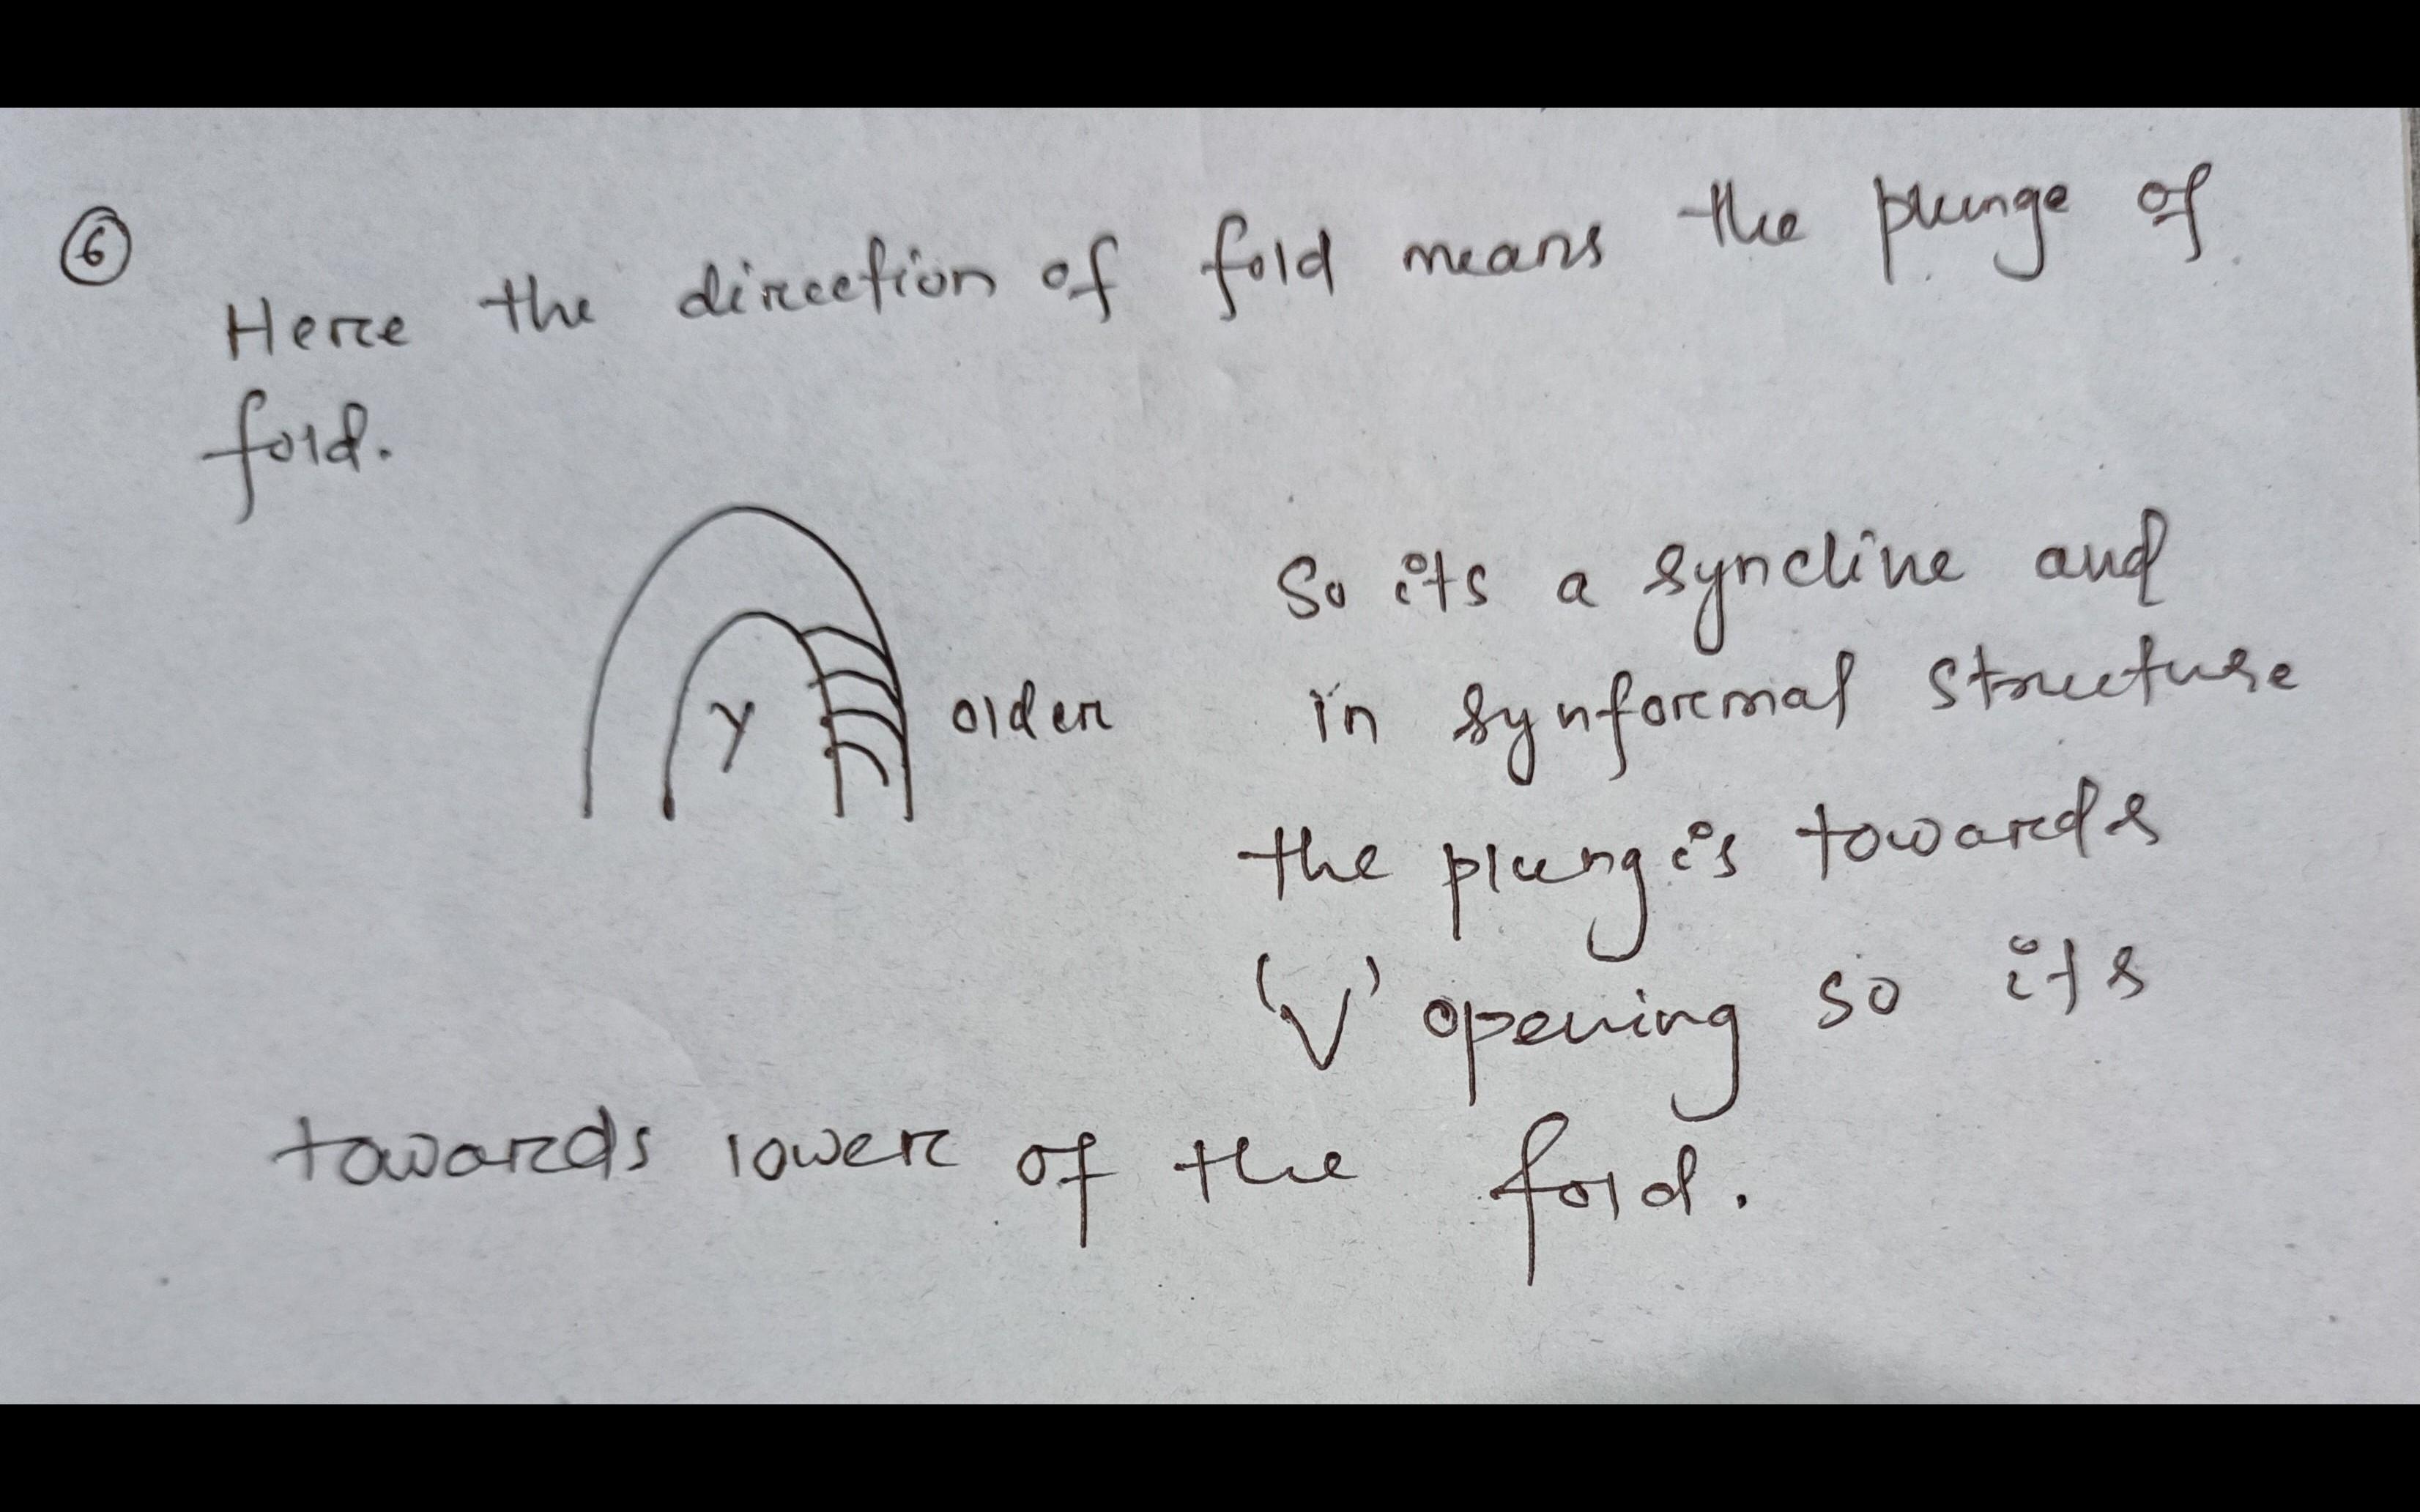 6
Here the direction of fold means the plunge of
fold.
Y
older
So its a syncline and
in synformal structure
the plung is towards
'V' opening so its
towards lower of the fold.